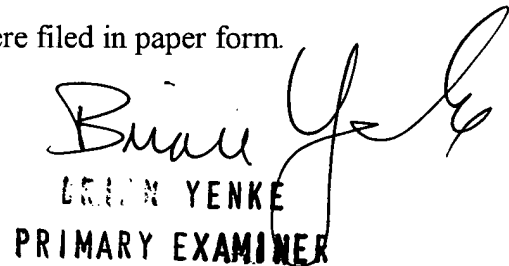 ere filed in paper form.
Brian Yenke
BRIAN YENKE
PRIMARY EXAMINER